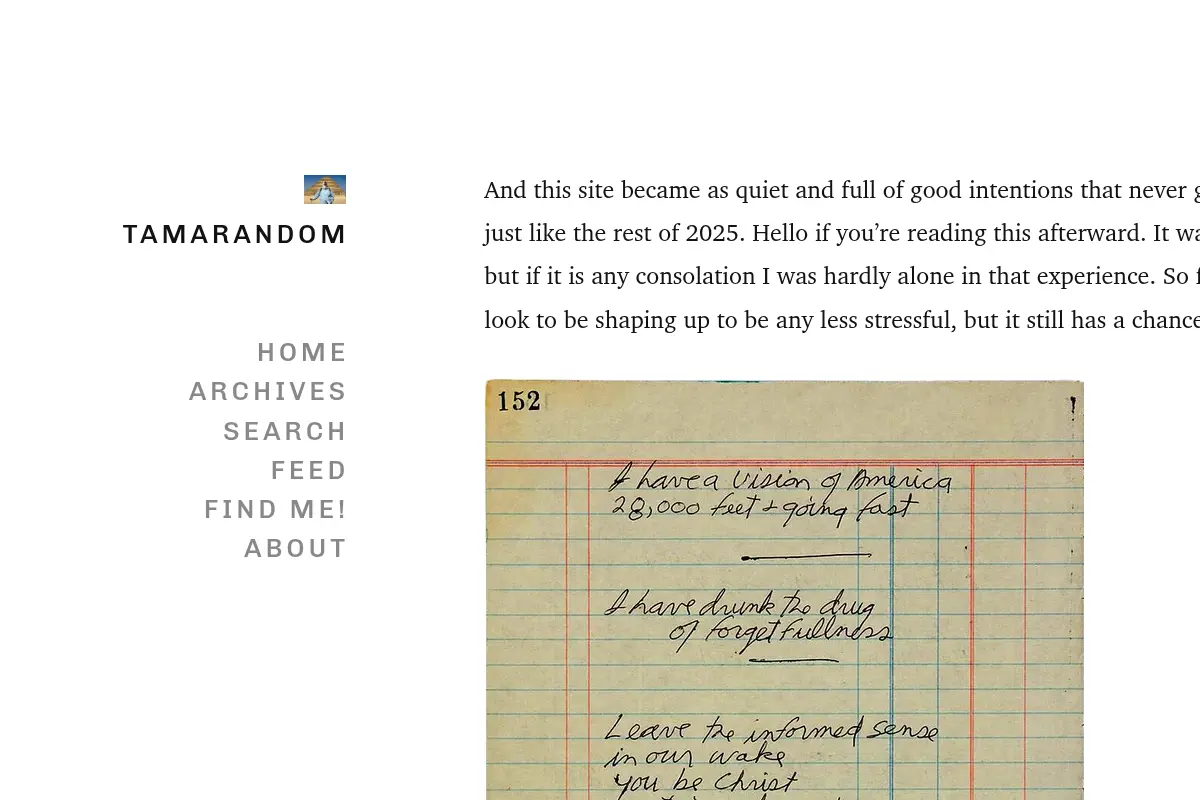 TAMARANDOM
HOME
ARCHIVES
SEARCH
FEED
FIND ME!
ABOUT
And this site became as quiet and full of good intentions that never
just like the rest of 2025. Hello if you’re reading this afterward. It
but if it is any consolation I was hardly alone in that experience. So
look to be shaping up to be any less stressful, but it still has a chance
152
I have a vision of America
28,000 feet & going fast
I have drunk the drug
of forgetfullness
Leave the informed sense
in our wake
you be Christ